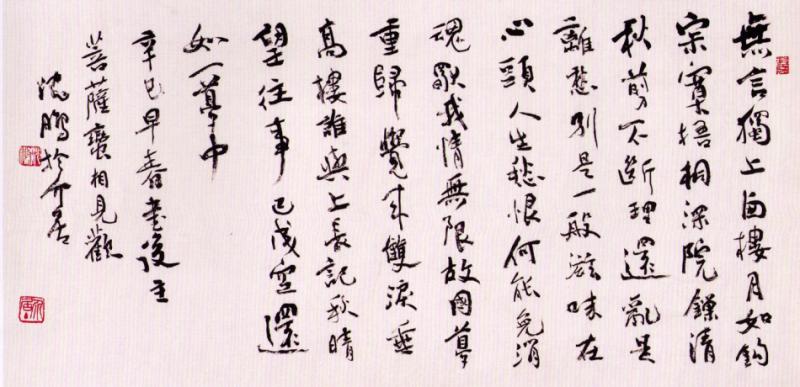 無言獨上西樓月如鈎
寂寞梧桐深院鎖清
秋剪不斷理還亂是
離愁別是一般滋味在
心頭人生愁恨何能免消
魂獨我情無限故國夢
重歸覺來雙淚垂
高樓誰與上長記秋晴
望往事已成空還
如一夢中
辛巳早春書後主
菩薩蠻相見歡
沈鵬於介居